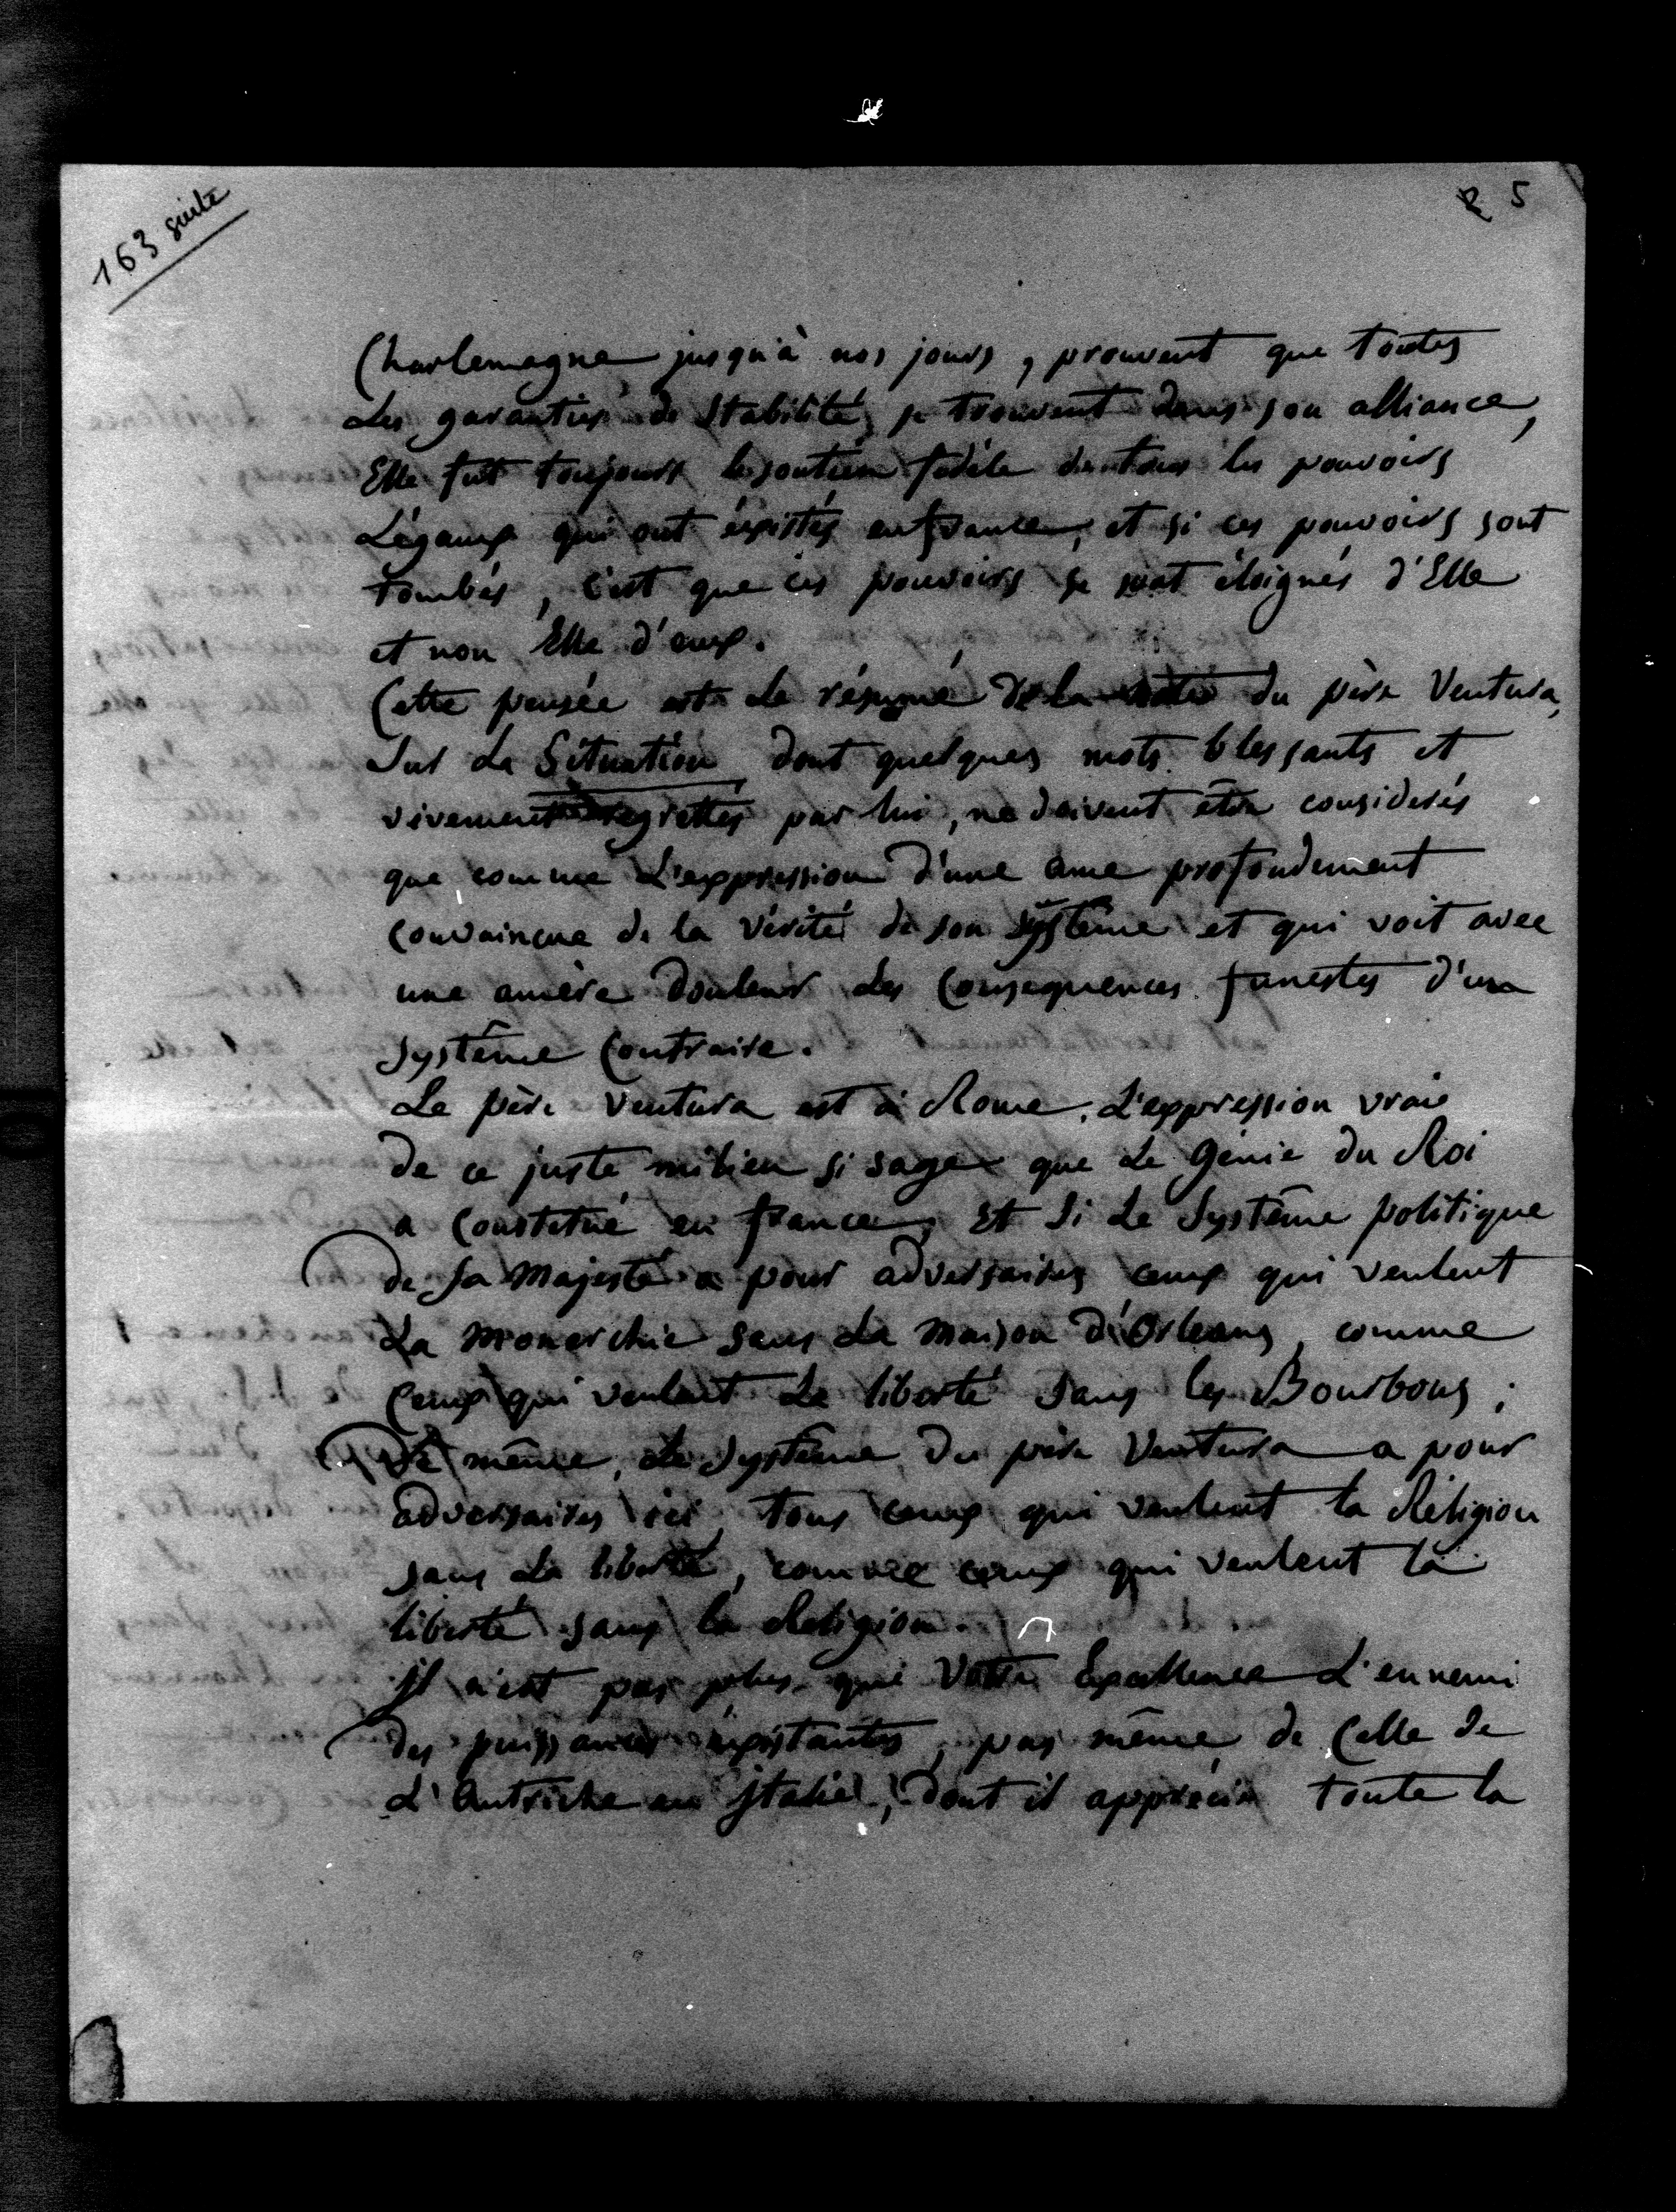 163 suite
5
Charlemagne jusqu'à nos jours, prouvent que toutes
Les garanties de Stabilité se trouvent dans son alliance,
Elle fut toujours le soutien fidèle de tous les pouvoirs
Légaux qui ont éxistés en france, et si ces pouvoirs sont
tombés, c'est que ces pouvoirs se sont éloignés d'Elle
et non Elle d'eux.
Cette pensée est le résumé de la du père Ventura,
Sur La Situation dont quelques mots blessants et
vivement regrettés par lui, ne doivent être considerés
que comme L'expression d'une ame profondement
convaincue de la vérité de son système et qui voit avec
une amère douleur Les Consequences funestes d'un
Système Contraire.
Le père Ventura est à Rome, L'expression vraie
de ce juste milieu si sage que Le Génie du Roi
a Constitué en france, Et Si Le Système politique
de Sa Majesté a pour adversaires ceux qui veulent
La Monarchie sans La Maison d'Orleans, comme
Ceux qui veulent La liberté Sans les Bourbons ;
De même, Le Système du père Ventura a pour
adversaires ici, tous ceux qui veulent la Réligion
sans La liberté, comme ceux qui veulent la
liberté sans la Religion.
Il n'est pas plus que Votre Excellence L'ennemi
des puissances existantes, pas même de Celle de
L'Autriche en Italie, dont il apprécie toute la